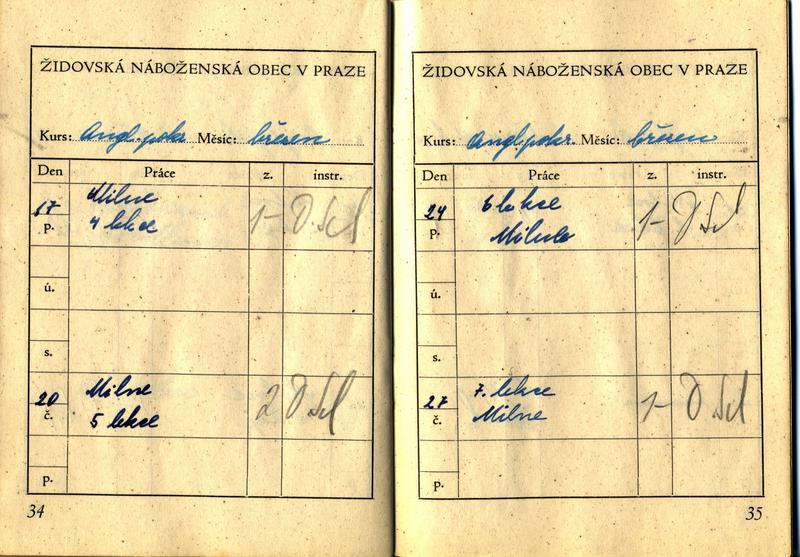 ŽIDOVSKÁ NÁBOŽENSKÁ OBEC V PRAZE
Kurs: Angl. pokr Měsíc: březen
Den Práce z. instr.
17 Milne
p. 4 lekce 1-
ú.
s.
20 Milne 2
č. 5 lekce
p.
34
ŽIDOVSKÁ NÁBOŽENSKÁ OBEC V PRAZE
Kurs: Angl. pokr Měsíc: březen
Den Práce z. instr.
24 6 lekce 1-
p. Milne
ú.
s.
27 7. lekce 1-
č. Milne
p.
35